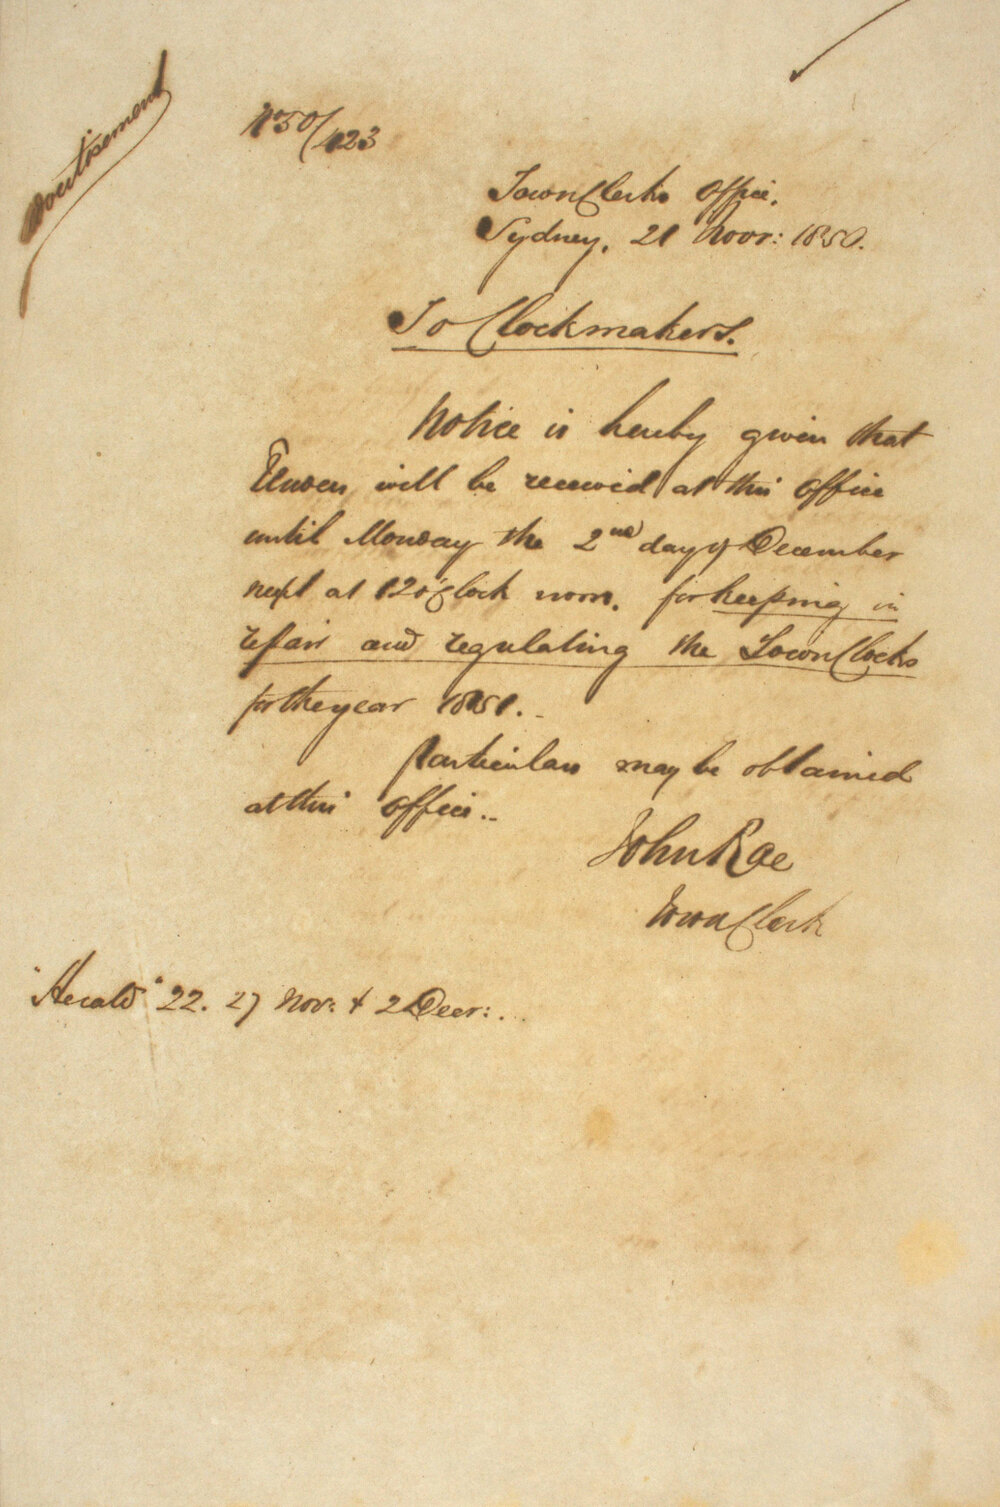 Advertisement
No 50/423
Town Clerks Office.
Sydney, 21 Novr: 1850.
To Clockmakers.
Notice is hereby given that
Tenders will be received at this Office
until Monday the 2nd day of December
next at 12 o'Clock noon, for keeping in
repair and regulating the Town Clocks
for the year 1851. -
Particulars may be obtained
at this Office..
John Rae
Town Clerk
"Herald" 22. 27 Nov: & 2 Decr: ..